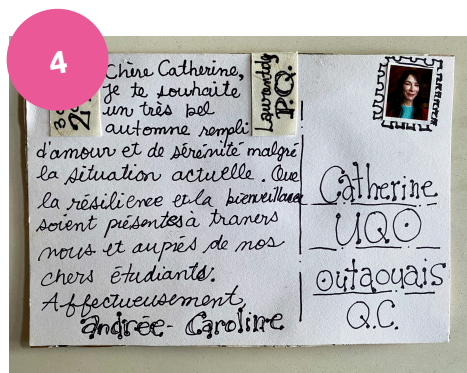 4
Chère Catherine,
Je te souhaite
un très bel
automne rempli
d'amour et de sérénité malgré
la situation actuelle. Que
la résilience et la bienveillance
soient présentes à travers
nous et auprès de nos
chers étudiants.
Affectueusement,
andrée-Caroline
P.Q.
Catherine
UQO
outaouais
Q.C.